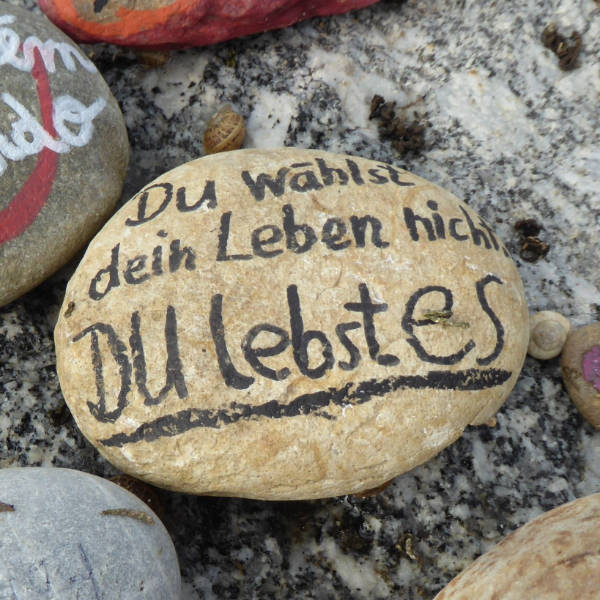 Du wählst
dein Leben nicht,
DU lebst es